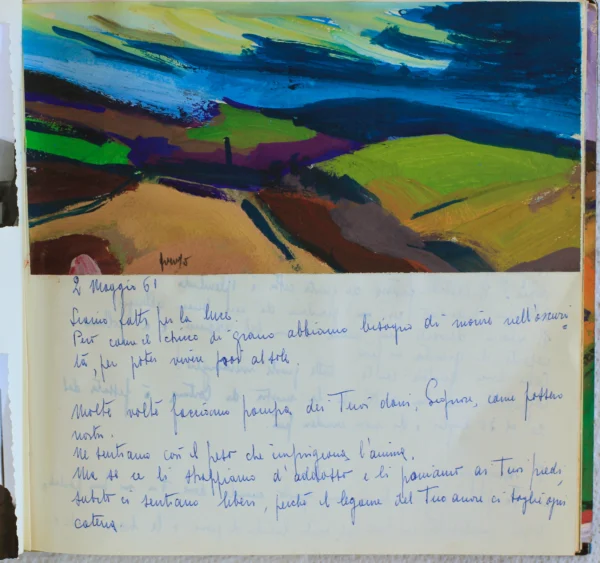 2 Maggio 61
Siamo fatti per la luce.
Però come il chicco di grano abbiamo bisogno di morire nell'oscuri
tà, per poter vivere poi al sole.
Molte volte facciamo pompa dei Tuoi doni, Signore, come fossero
nostri.
Ne sentiamo così il peso che imprigiona l'anima.
Ma se ce li strappiamo d'addosso e li poniamo ai Tuoi piedi
subito ci sentiamo liberi, perchè il legame del Tuo amore ci toglie ogni
catena